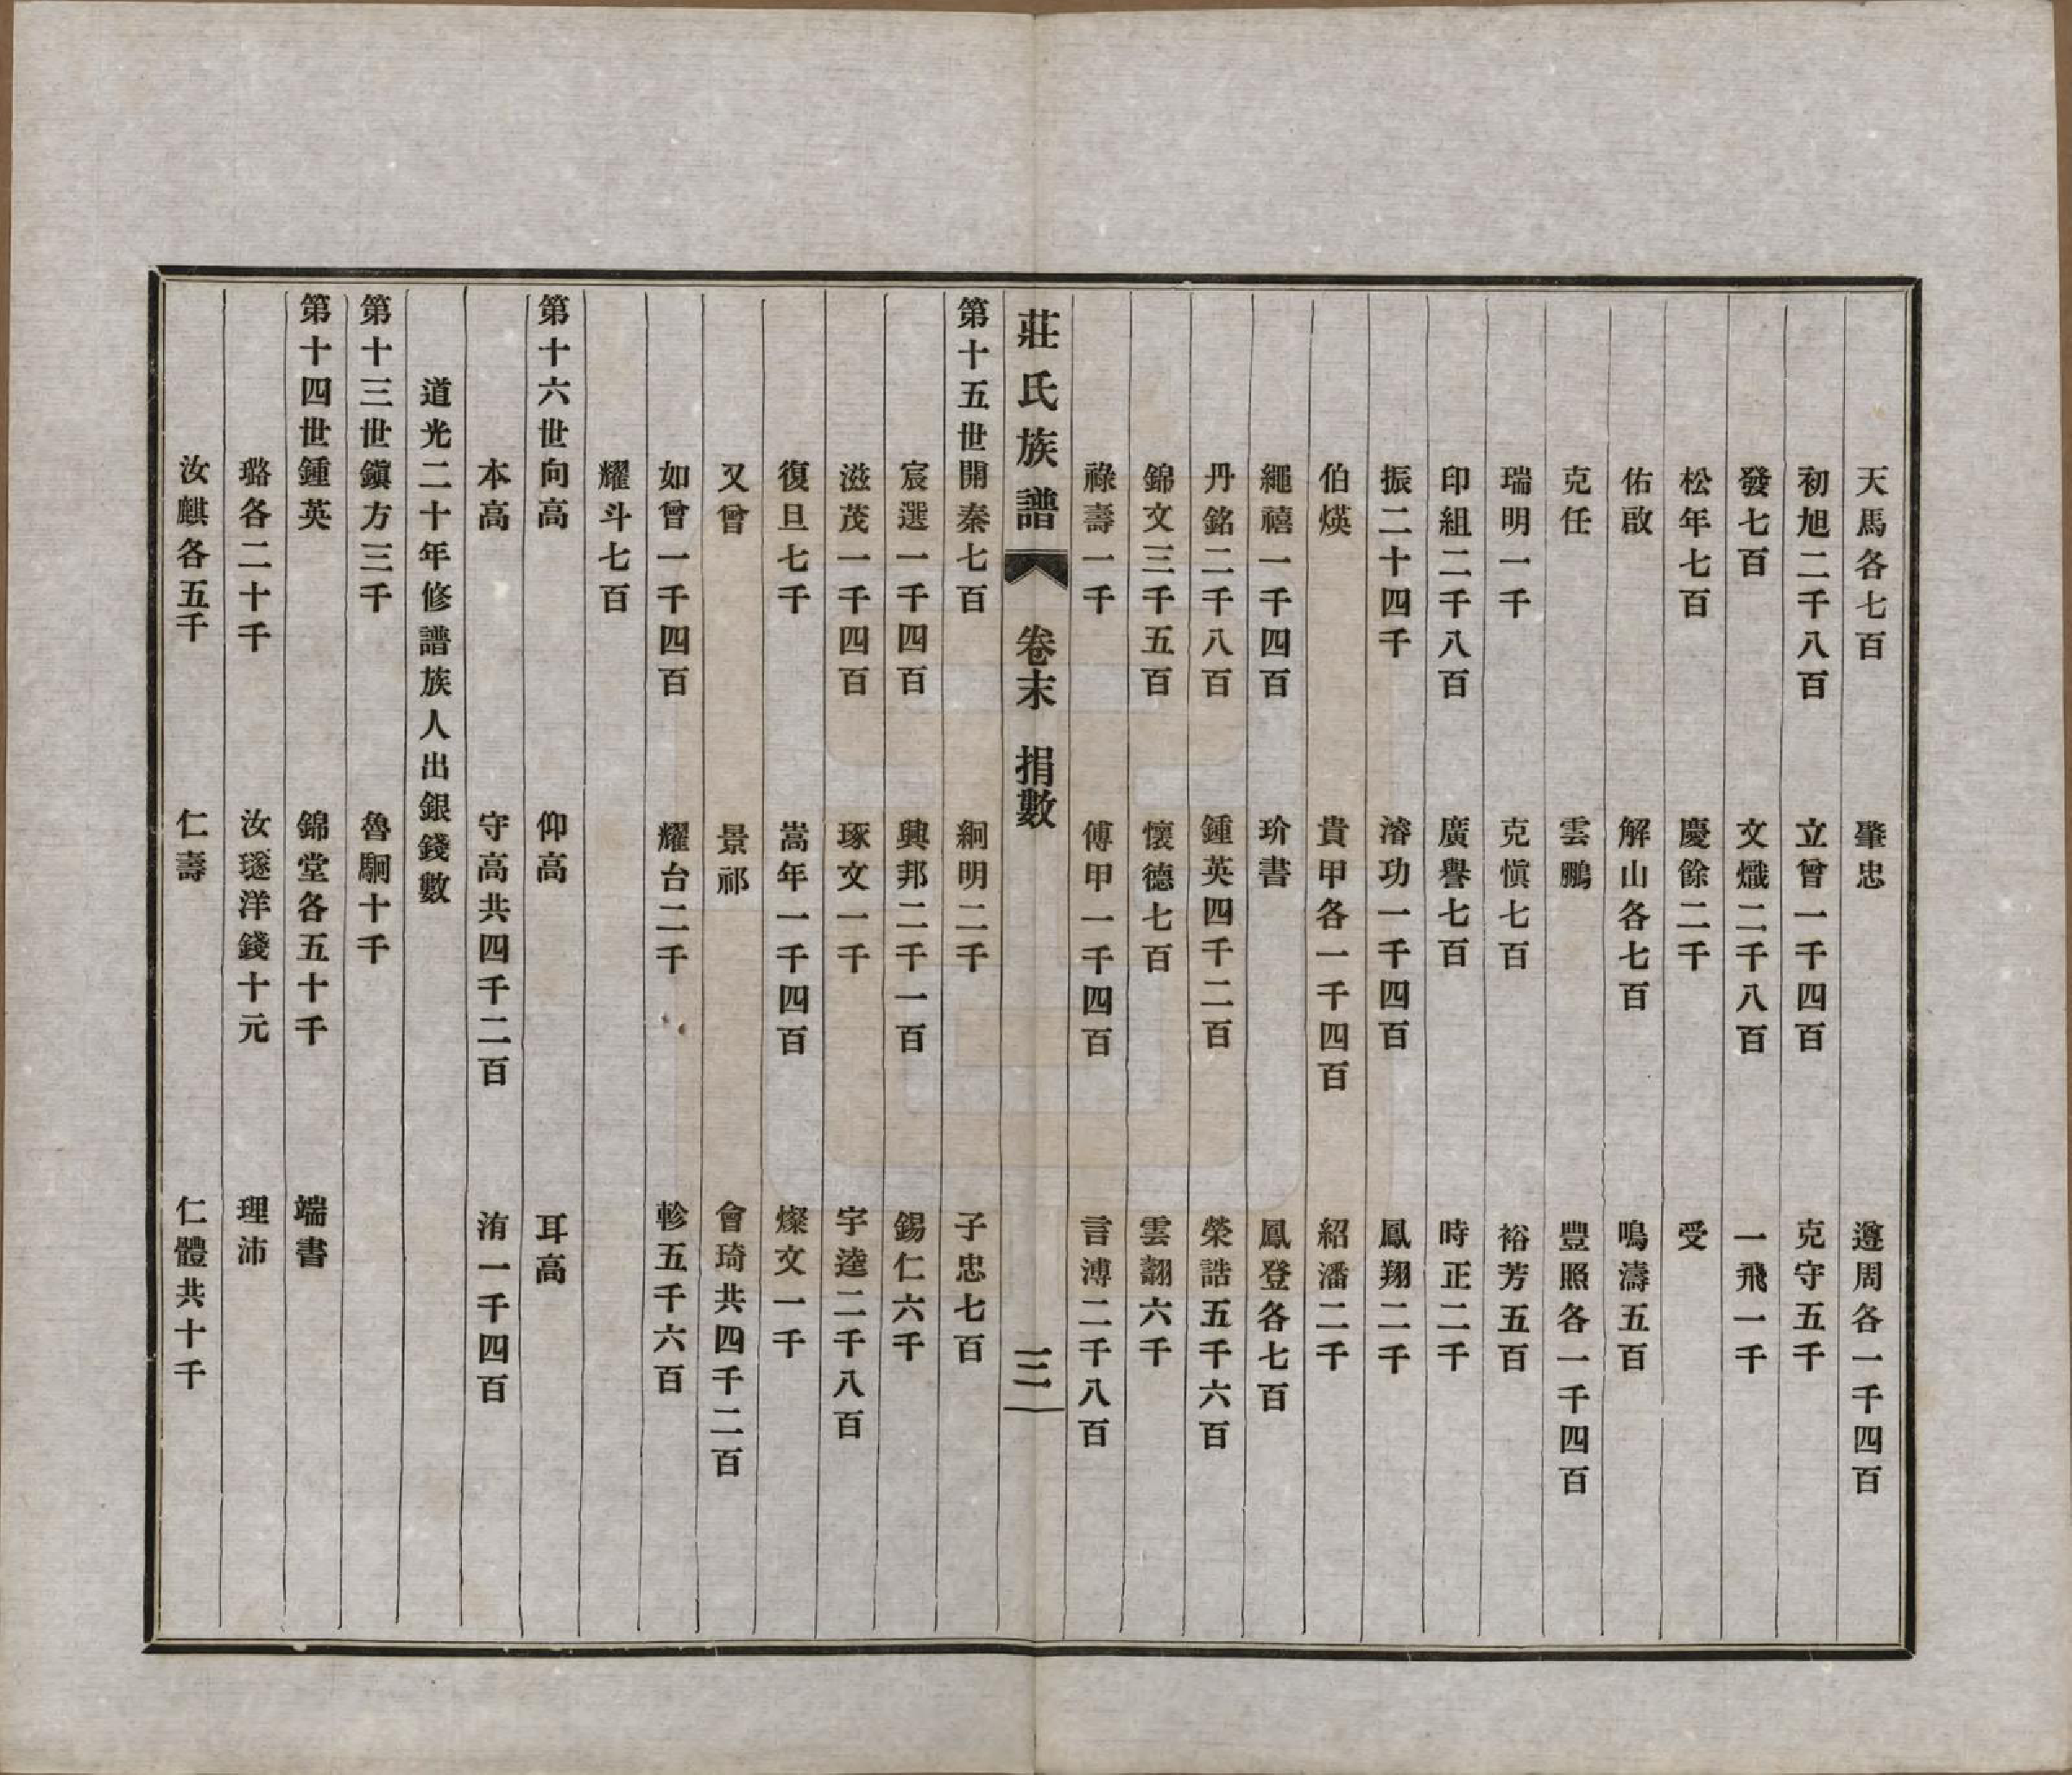 天馬各七百　肇忠　遵周各一千四百
初旭二千八百　立曾一千四百　克守五千
發七百　文熾二千八百　一飛一千
松年七百　慶餘二千　受
佑啟　解山各七百　鳴濤五百
克任　雲鵬　豐照各一千四百
瑞明一千　克愼七百　裕芳五百
印組二千八百　廣譽七百　時正二千
振二十四千　濬功一千四百　鳳翔二千
伯煐　貴甲各一千四百　紹潘二千
繩禧一千四百　玠書　鳳登各七百
丹銘二千八百　鍾英四千二百　榮誥五千六百
錦文三千五百　懷德七百　雲翽六千
祿壽一千　傅甲一千四百　言溥二千八百
莊氏族譜　卷末　捐數　三
第十五世開秦七百　絅明二千　子忠七百
宸選一千四百　興邦二千一百　錫仁六千
滋茂一千四百　琢文一千　宇逵二千八百
復旦七千　嵩年一千四百　燦文一千
又曾　景祁　會琦共四千二百
如曾一千四百　耀台二千　軫五千六百
耀斗七百
第十六世向高　仰高　耳高
本高　守高共四千二百　洧一千四百
道光二十年修譜族人出銀錢數
第十三世鎭方三千　魯駉十千
第十四世鍾英　錦堂各五十千　端書
璐各二十千　汝璲洋錢十元　理沛
汝麒各五千　仁壽　仁體共十千